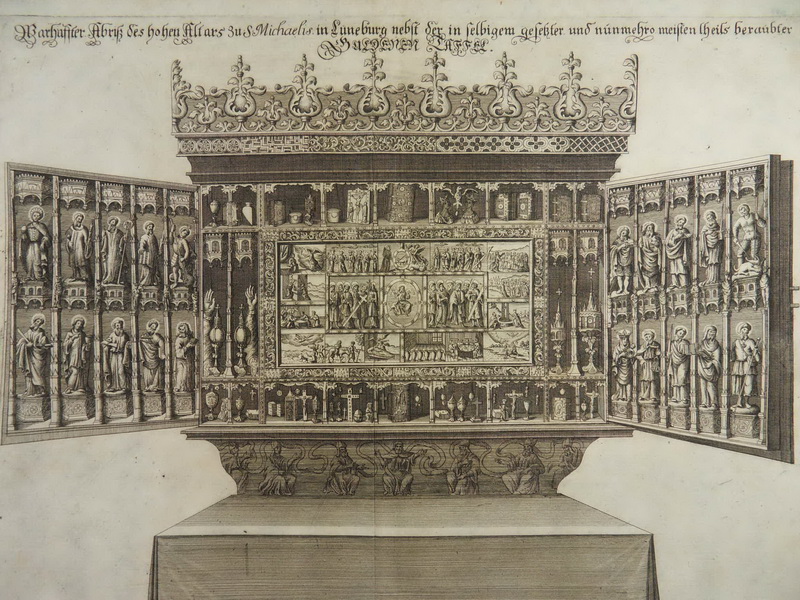 Warhaffter Abriß des hohen Altars zu S. Michaelis in Lüneburg nebst der in selbigem gesetzter und nunmehro meisten theils beraubter
GULDENEN TAFFEL.